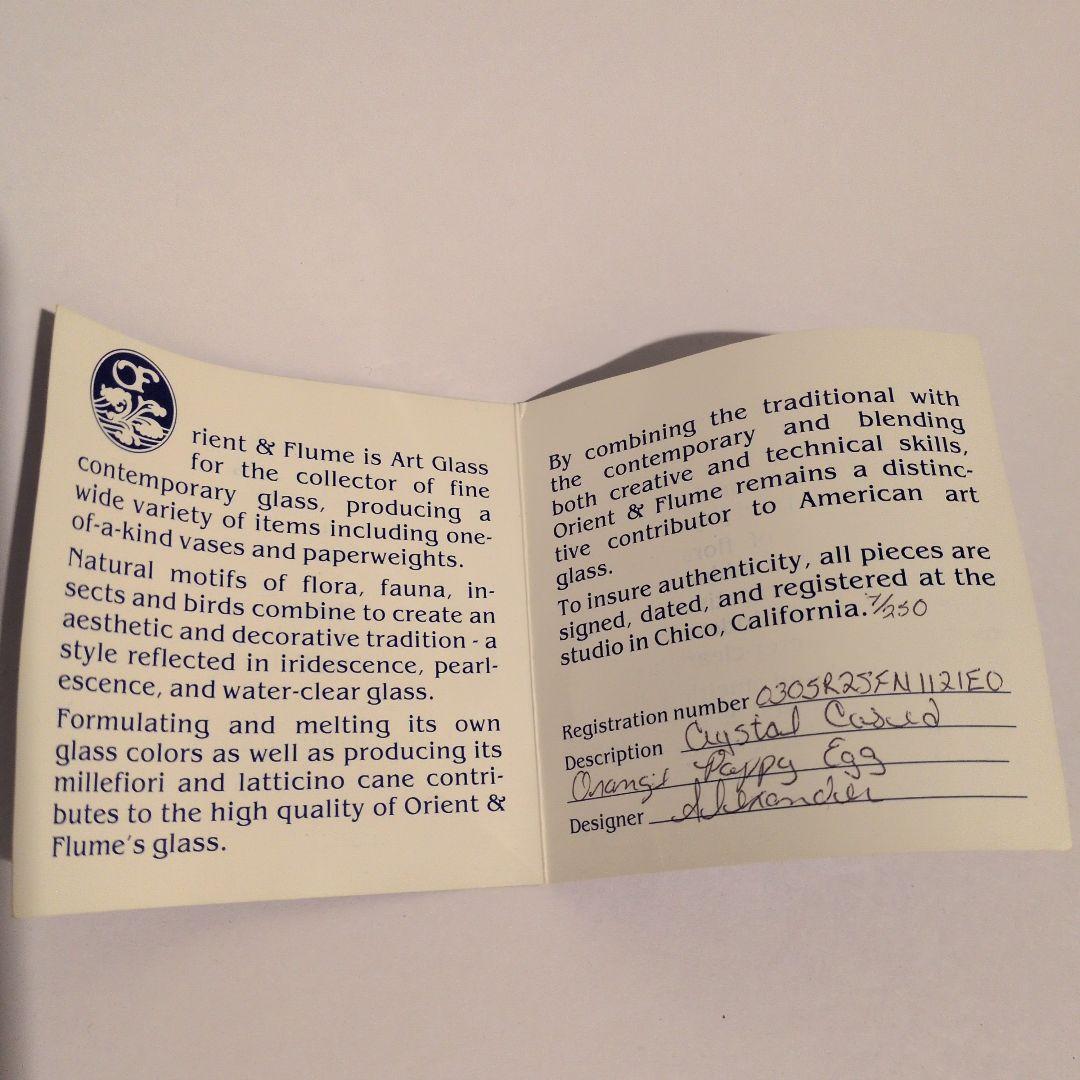 OF
rient & Flume is Art Glass
for the collector of fine
contemporary glass, producing a
wide variety of items including one-
of-a-kind vases and paperweights.
Natural motifs of flora, fauna, in-
sects and birds combine to create an
aesthetic and decorative tradition - a
style reflected in iridescence, pearl-
escence, and water-clear glass.
Formulating and melting its own
glass colors as well as producing its
millefiori and latticino cane contri-
butes to the high quality of Orient &
Flume's glass.
By combining the traditional with
the contemporary and blending
both creative and technical skills,
Orient & Flume remains a distinc-
tive contributor to American art
glass.
To insure authenticity, all pieces are
signed, dated, and registered at the
studio in Chico, California. 7/250
Registration number
Description Crystal Cased
Poppy Egg
Designer Alexander